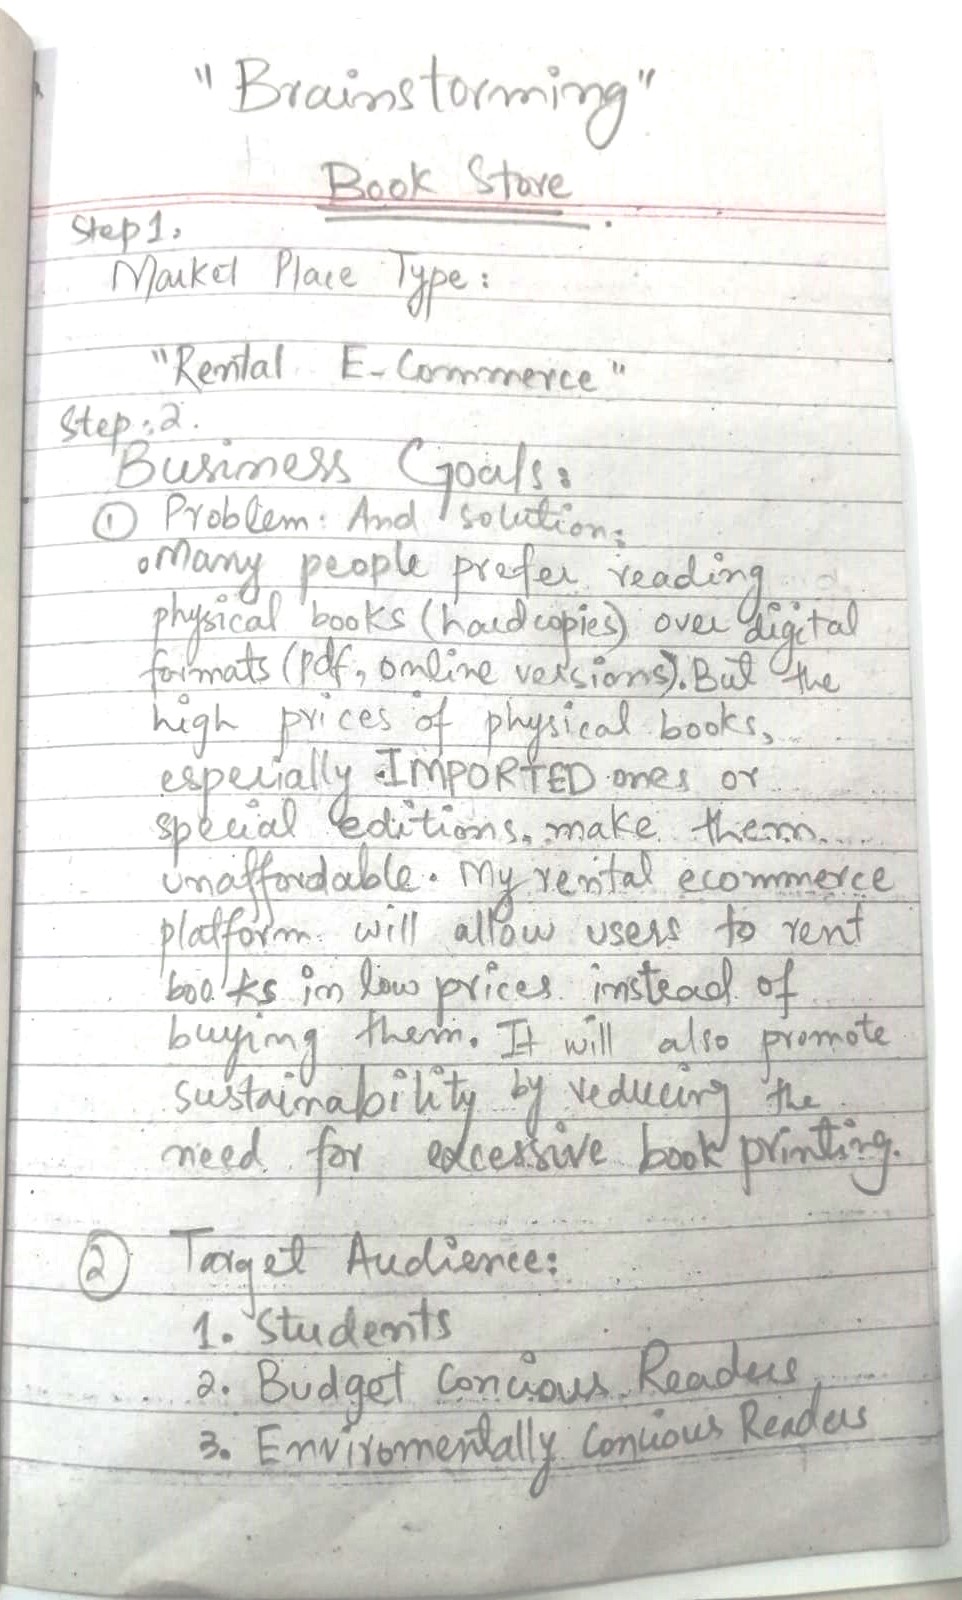 "Brainstorming"
Book Store
Step 1.
Market Place Type:
"Rental E-Commerce"
Step:2.
Business Goals:
① Problem: And solution:
Many people prefer reading
physical books (hardcopies) over digital
formats (pdf, online versions). But the
high prices of physical books,
especially IMPORTED ones or
special editions, make them
unaffordable. My rental ecommerce
platform will allow users to rent
books in low prices instead of
buying them. It will also promote
sustainability by reducing the
need for excessive book printing.
② Target Audience:
1. Students
2. Budget Concious Readers
3. Enviromentally Concious Readers